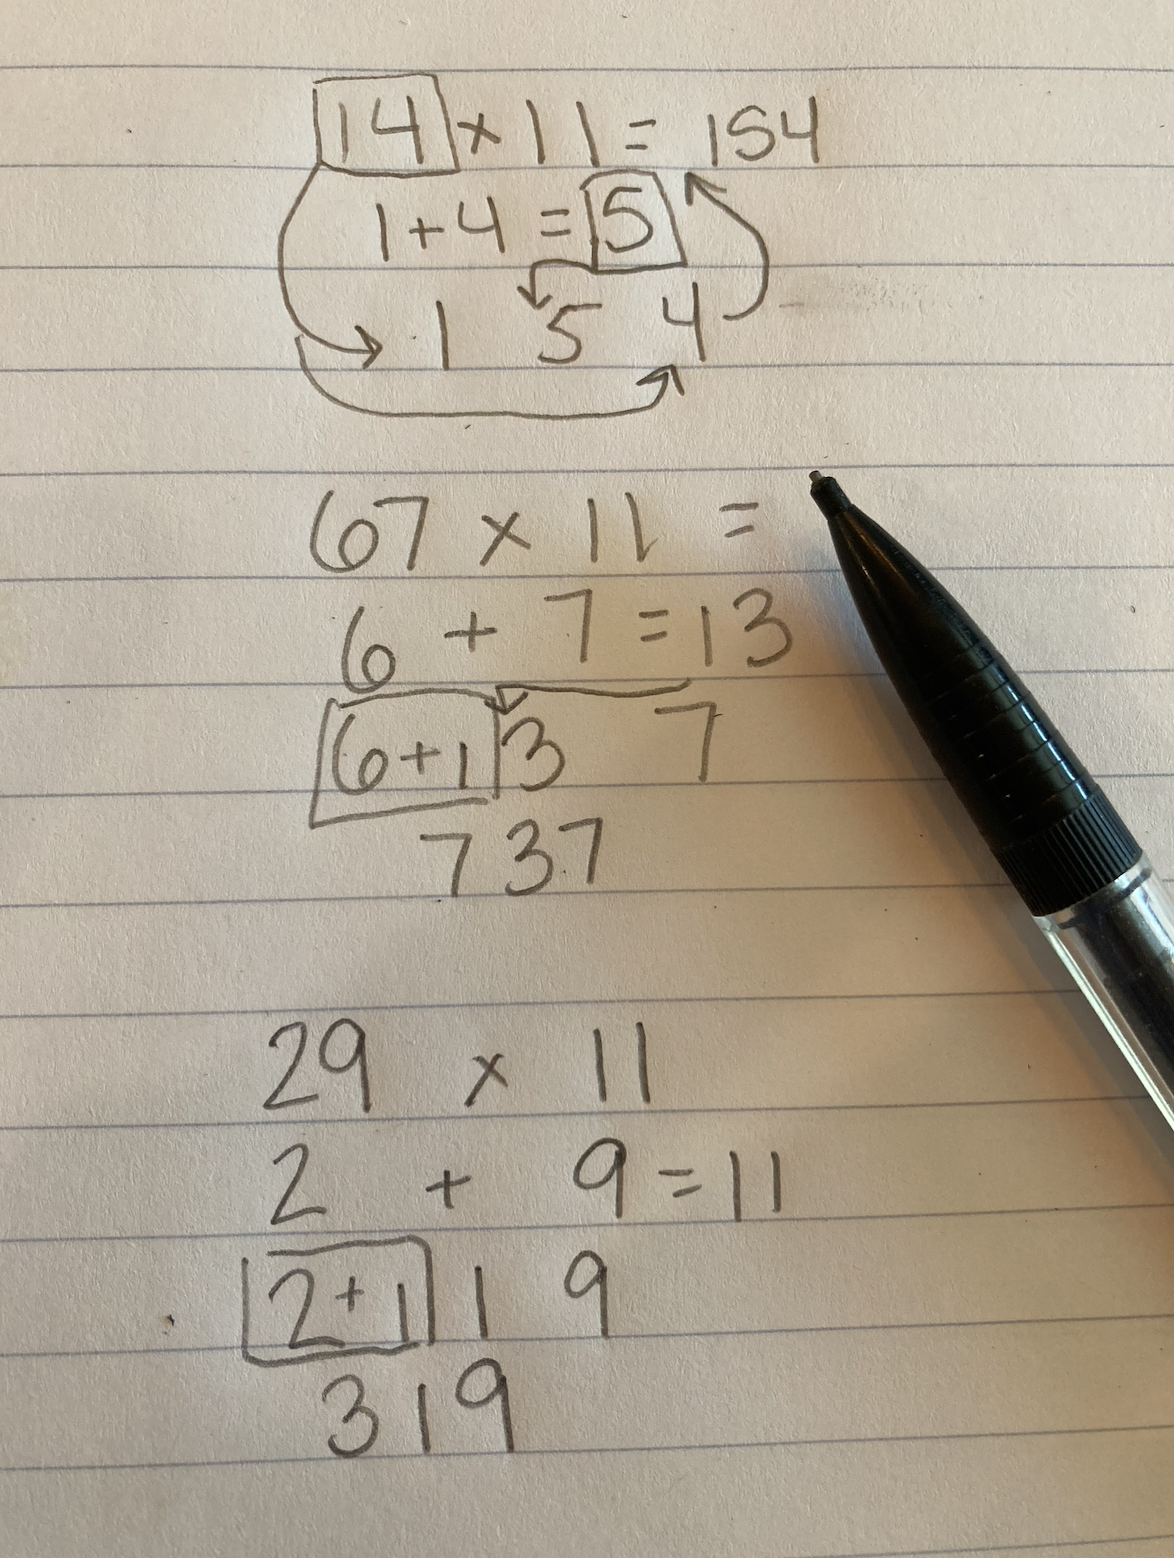 14 × 11 = 154
1 + 4 = 5
1 5 4
67 × 11 =
6 + 7 = 13
6 + 1 3 7
737
29 × 11
2 + 9 = 11
2 + 1 1 9
319